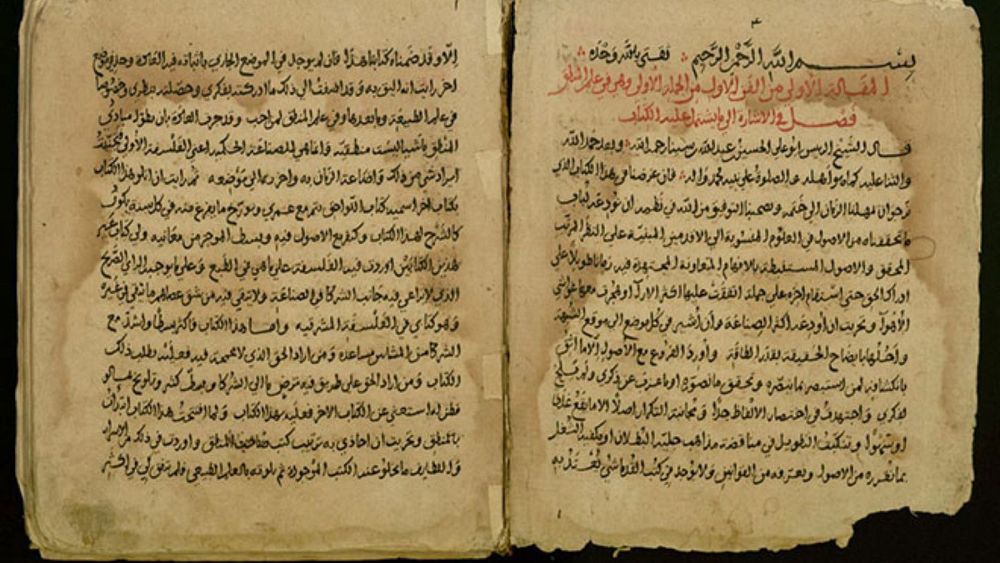 بسم الله الرحمن الرحيم ثقتي بالله وحده
المقالة الاولى من الفن الاول من الجملة الاولى وهي في علم المنطق
فصل في الاشارة الى ما يشتمل عليه الكتاب
قال الشيخ الريس ابو علي الحسين بن عبد الله بن سينا رحمه الله وبعد حمد الله
والثنا عليه كما هو اهله والصلوة على نبيه محمد واله فان غرضنا في هذا الكتاب الذي
نرجو ان يمهلنا الزمان الى ختمه ويصحبنا التوفيق من الله في نظمه ان نودعه لباب
ما تحققناه من الاصول في العلوم المنسوبة الى الاقدمين المبنية على النظر المرتب
المحقق والاصول المستنبطة بالافهام المتعاونة المجتهدة فيه زمانا طويلا على
ادراك الحق حتى استقام اخره على جملة اتفقت عليها اكثر الآرا وهجرت معها غواشي
الأهوآ وتحريت ان اودعه اكثر الصناعة وان أشير في كل موضع الى موقع الشبهة
وأحلها بايضاح الحقيقة بقدر الطاقة واورد الفروع مع الاصول الا ما اثق
بانكشافه لمن استبصر بما نبصره وتحقق ما نصوره او ما عزب عن ذكري ولم يلح
لفكري واجتهدت في اختصار الالفاظ جدا ومجانبة التكرار اصلا الا ما يقع غلطا
او سهوا وتنكبت التطويل في مناقضة مذاهب جلية البطلان او مكفية الشغل
بما نقرره من الاصول ونعرفه من القوانين ولا يوجد في كتب القدما شي يعتد به
الا وقد ضمناه كتابنا هذا فان لم يوجد في الموضع الجاري باثباته فيه العادة وجد في موضع
اخر رايت انه اليق به وقد اضفت الى ذلك ما ادركته بفكري وحصلته بنظري وخصوصا
في علم الطبيعة وما بعدها وفي علم المنطق وقد جرت العادة بان تطول مبادي
المنطق باشيا ليست منطقية وانما هي للصناعة الحكمية اعني الفلسفة الأولى فتجنبت
ايراد شي من ذلك واضاعة الزمان به واخرته الى موضعه ثم رايت ان اتلو هذا الكتاب
بكتاب اخر اسميه كتاب اللواحق يتم مع عمري ويورخ بما يفرغ منه في كل سنة يكون
كالشرح لهذا الكتاب وكتفريع الاصول فيه وبسط الموجز من معانيه ولي كتاب غير
هذين الكتابين اوردت فيه الفلسفة على ما هي في الطبع وعلى ما يوجبه الراي الصريح
الذي لا يراعى فيه جانب الشركا في الصناعة ولا يتقى فيه من شق عصاهم ما يتقى في غيره
وهو كتابي في الفلسفة المشرقية واما هذا الكتاب فاكثر بسطا واشد مع
الشركا من المشائين مساعدة ومن اراد الحق الذي لا مجمجة فيه فعليه بطلب ذلك
الكتاب ومن اراد الحق على طريق فيه ترض ما الى الشركا وبسط كثير وتلويح بما لو
فطن له استغنى عن الكتاب الاخر فعليه بهذا الكتاب ولما افتتحت هذا الكتاب ابتدات
بالمنطق وتحريت ان احاذي به ترتيب كتب صاحب المنطق واوردت في ذلك من الاسرار
واللطايف ما تخلو عنه الكتب الموجودة ثم تلوته بالعلم الطبيعي فلم يتفق لي في اكثر